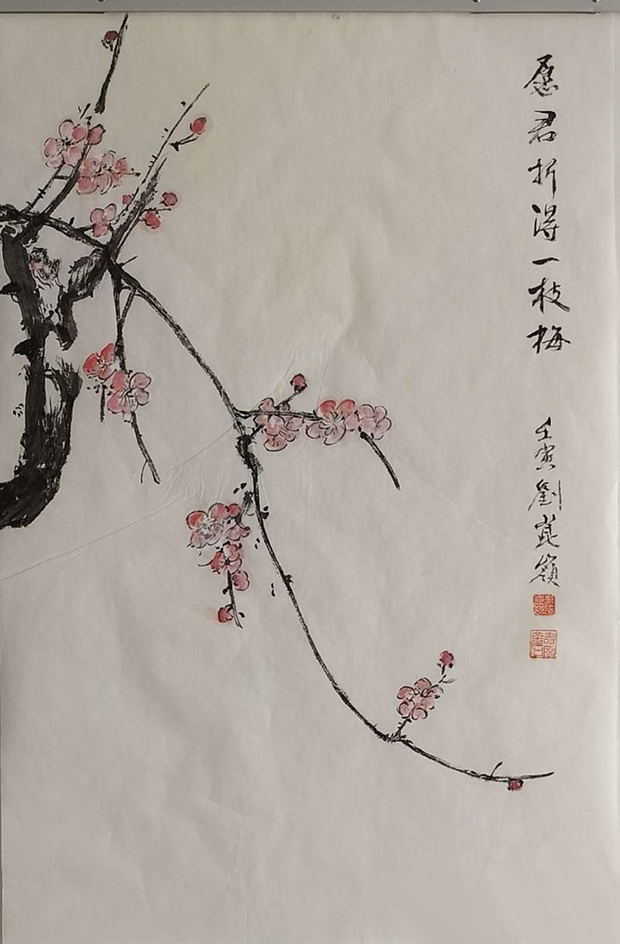 愿君折得一枝梅
壬寅劉崑嶺